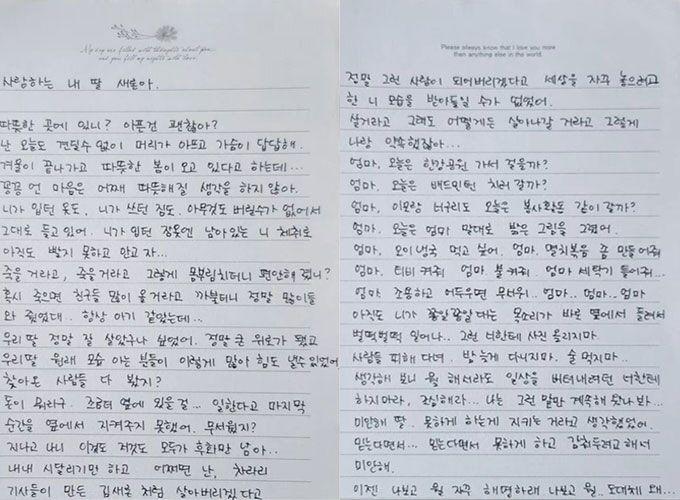 My day are filled with thoughts about you..
and you fill my nights with love.
사랑하는 내 딸 새론아.
따뜻한 곳에 있니? 아픈건 괜찮아?
난 오늘도 견딜수 없이 머리가 아프고 가슴이 답답해.
겨울이 끝나가고 따뜻한 봄이 오고 있다고 하는데...
꽁꽁 언 마음은 어째 따뜻해질 생각을 하지 않아.
니가 입던 옷도, 니가 쓰던 짐도, 아무것도 버릴수가 없어서
그대로 들고 있어. 니가 입던 잠옷엔 남아있는 니 체취로
아직도 빨지 못하고 안고 자...
죽을 거라고, 죽을거라고 그렇게 몸부림치더니 편안해 졌니?
혹시 죽으면 친구들 많이 올거라고 까불더니 정말 많이들
와 줬었다. 항상 아기 같았는데...
우리딸 정말 잘 살았구나 싶었어. 정말 큰 위로가 됐고
우리딸 원래 모습 아는 분들이 이렇게 많아 힘도 낼수 있었어
찾아온 사람들 다 봤지?
돈이 뭐라구. 조금더 옆에 있을 걸... 일한다고 마지막
순간을 옆에서 지켜주지 못했어. 무서웠지?
지나고 나니 이것도 저것도 모두가 후회만 남아..
내내 시달리기만 하고 어쩌면 넌, 차라리
기사들이 만든 김새론 처럼 살아버리겠다고
Please always know that I love you more
than anything else in the world.
정말 그런 사람이 되어버리겠다고 세상을 자꾸 놓으려고
한 니 모습을 받아들일 수가 없었어.
살거라고 그래도 어떻게든 살아나갈 거라고 그렇게
나랑 약속했잖아...
엄마, 오늘은 한강공원 가서 걸을까?
엄마, 오늘은 배드민턴 치러 갈까?
엄마, 이모랑 너구리도 오늘은 봉사활동 같이 갈까?
엄마, 오늘은 엄마 말대로 밝은 그림을 그렸어.
엄마, 오이냉국 먹고 싶어. 엄마. 멸치볶음 좀 만들어줘
엄마. 티비 켜줘 엄마. 불 켜줘. 엄마 세탁기 돌려줘...
엄마. 조용하고 어두우면 무서워.. 엄마.. 엄마.. 엄마
아직도 니가 쫑알쫑알 대는 목소리가 바로 옆에서 들려서
벌떡벌떡 일어나.. 그런 너한테 사진 올리지마.
사람들 피해 다녀. 밤 늦게 다니지마. 술 먹지마..
생각해 보니 뭘 해서라도 일상을 버텨내려던 너한테
하지마라, 조심해라.. 나는 그런 말만 계속해 왔나 봐...
미안해 딸. 못하게 하는게 지키는 거라고 생각했었어.
믿는다면서... 믿는다면서 못하게 하고 감춰두려고 해서
미안해.
이젠 나보고 뭘 자꾸 해명하래 나보고 뭘.. 도대체 왜...